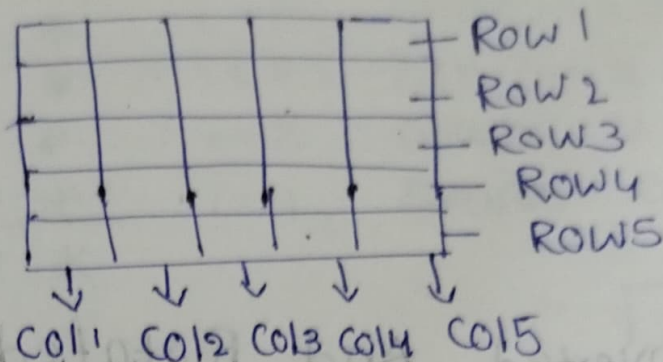 ROW 1
ROW 2
ROW 3
ROW4
ROW5
Col1 Col2 Col3 Col4 Col5